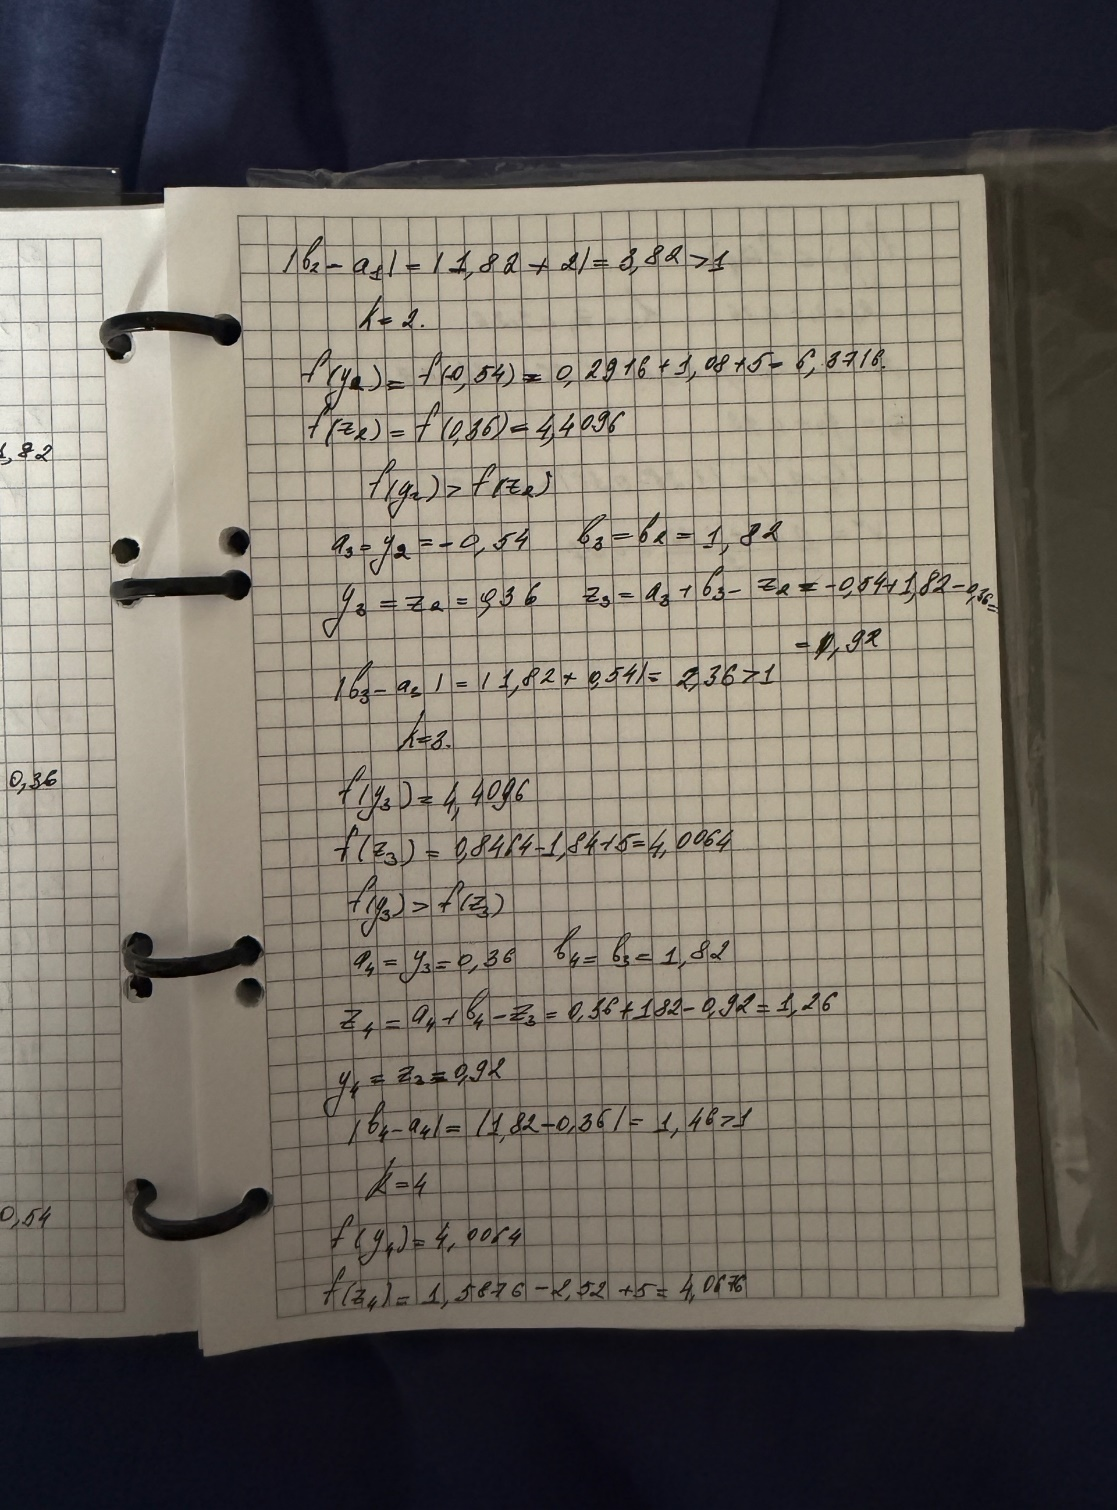 1,82
0,36
0,54
|b₂ - a₁| = |1,82 + 2| = 3,82 > 1
k = 2.
f(y₂) = f(-0,54) = 0,2916 + 1,08 + 5 = 6,3716.
f(z₂) = f(0,36) = 4,4096
f(y₂) > f(z₂)
a₃ = y₂ = -0,54 b₃ = b₂ = 1,82
y₃ = z₂ = 0,36 z₃ = a₃ + b₃ - z₂ = -0,54 + 1,82 - 0,36 =
= 0,92
|b₃ - a₃| = |1,82 + 0,54| = 2,36 > 1
k = 3.
f(y₃) = 4,4096
f(z₃) = 0,8464 - 1,84 + 5 = 4,0064
f(y₃) > f(z₃)
a₄ = y₃ = 0,36 b₄ = b₃ = 1,82
z₄ = a₄ + b₄ - z₃ = 0,36 + 1,82 - 0,92 = 1,26
y₄ = z₃ = 0,92
|b₄ - a₄| = |1,82 - 0,36| = 1,46 > 1
k = 4
f(y₄) = 4,0064
f(z₄) = 1,5876 - 2,52 + 5 = 4,0676